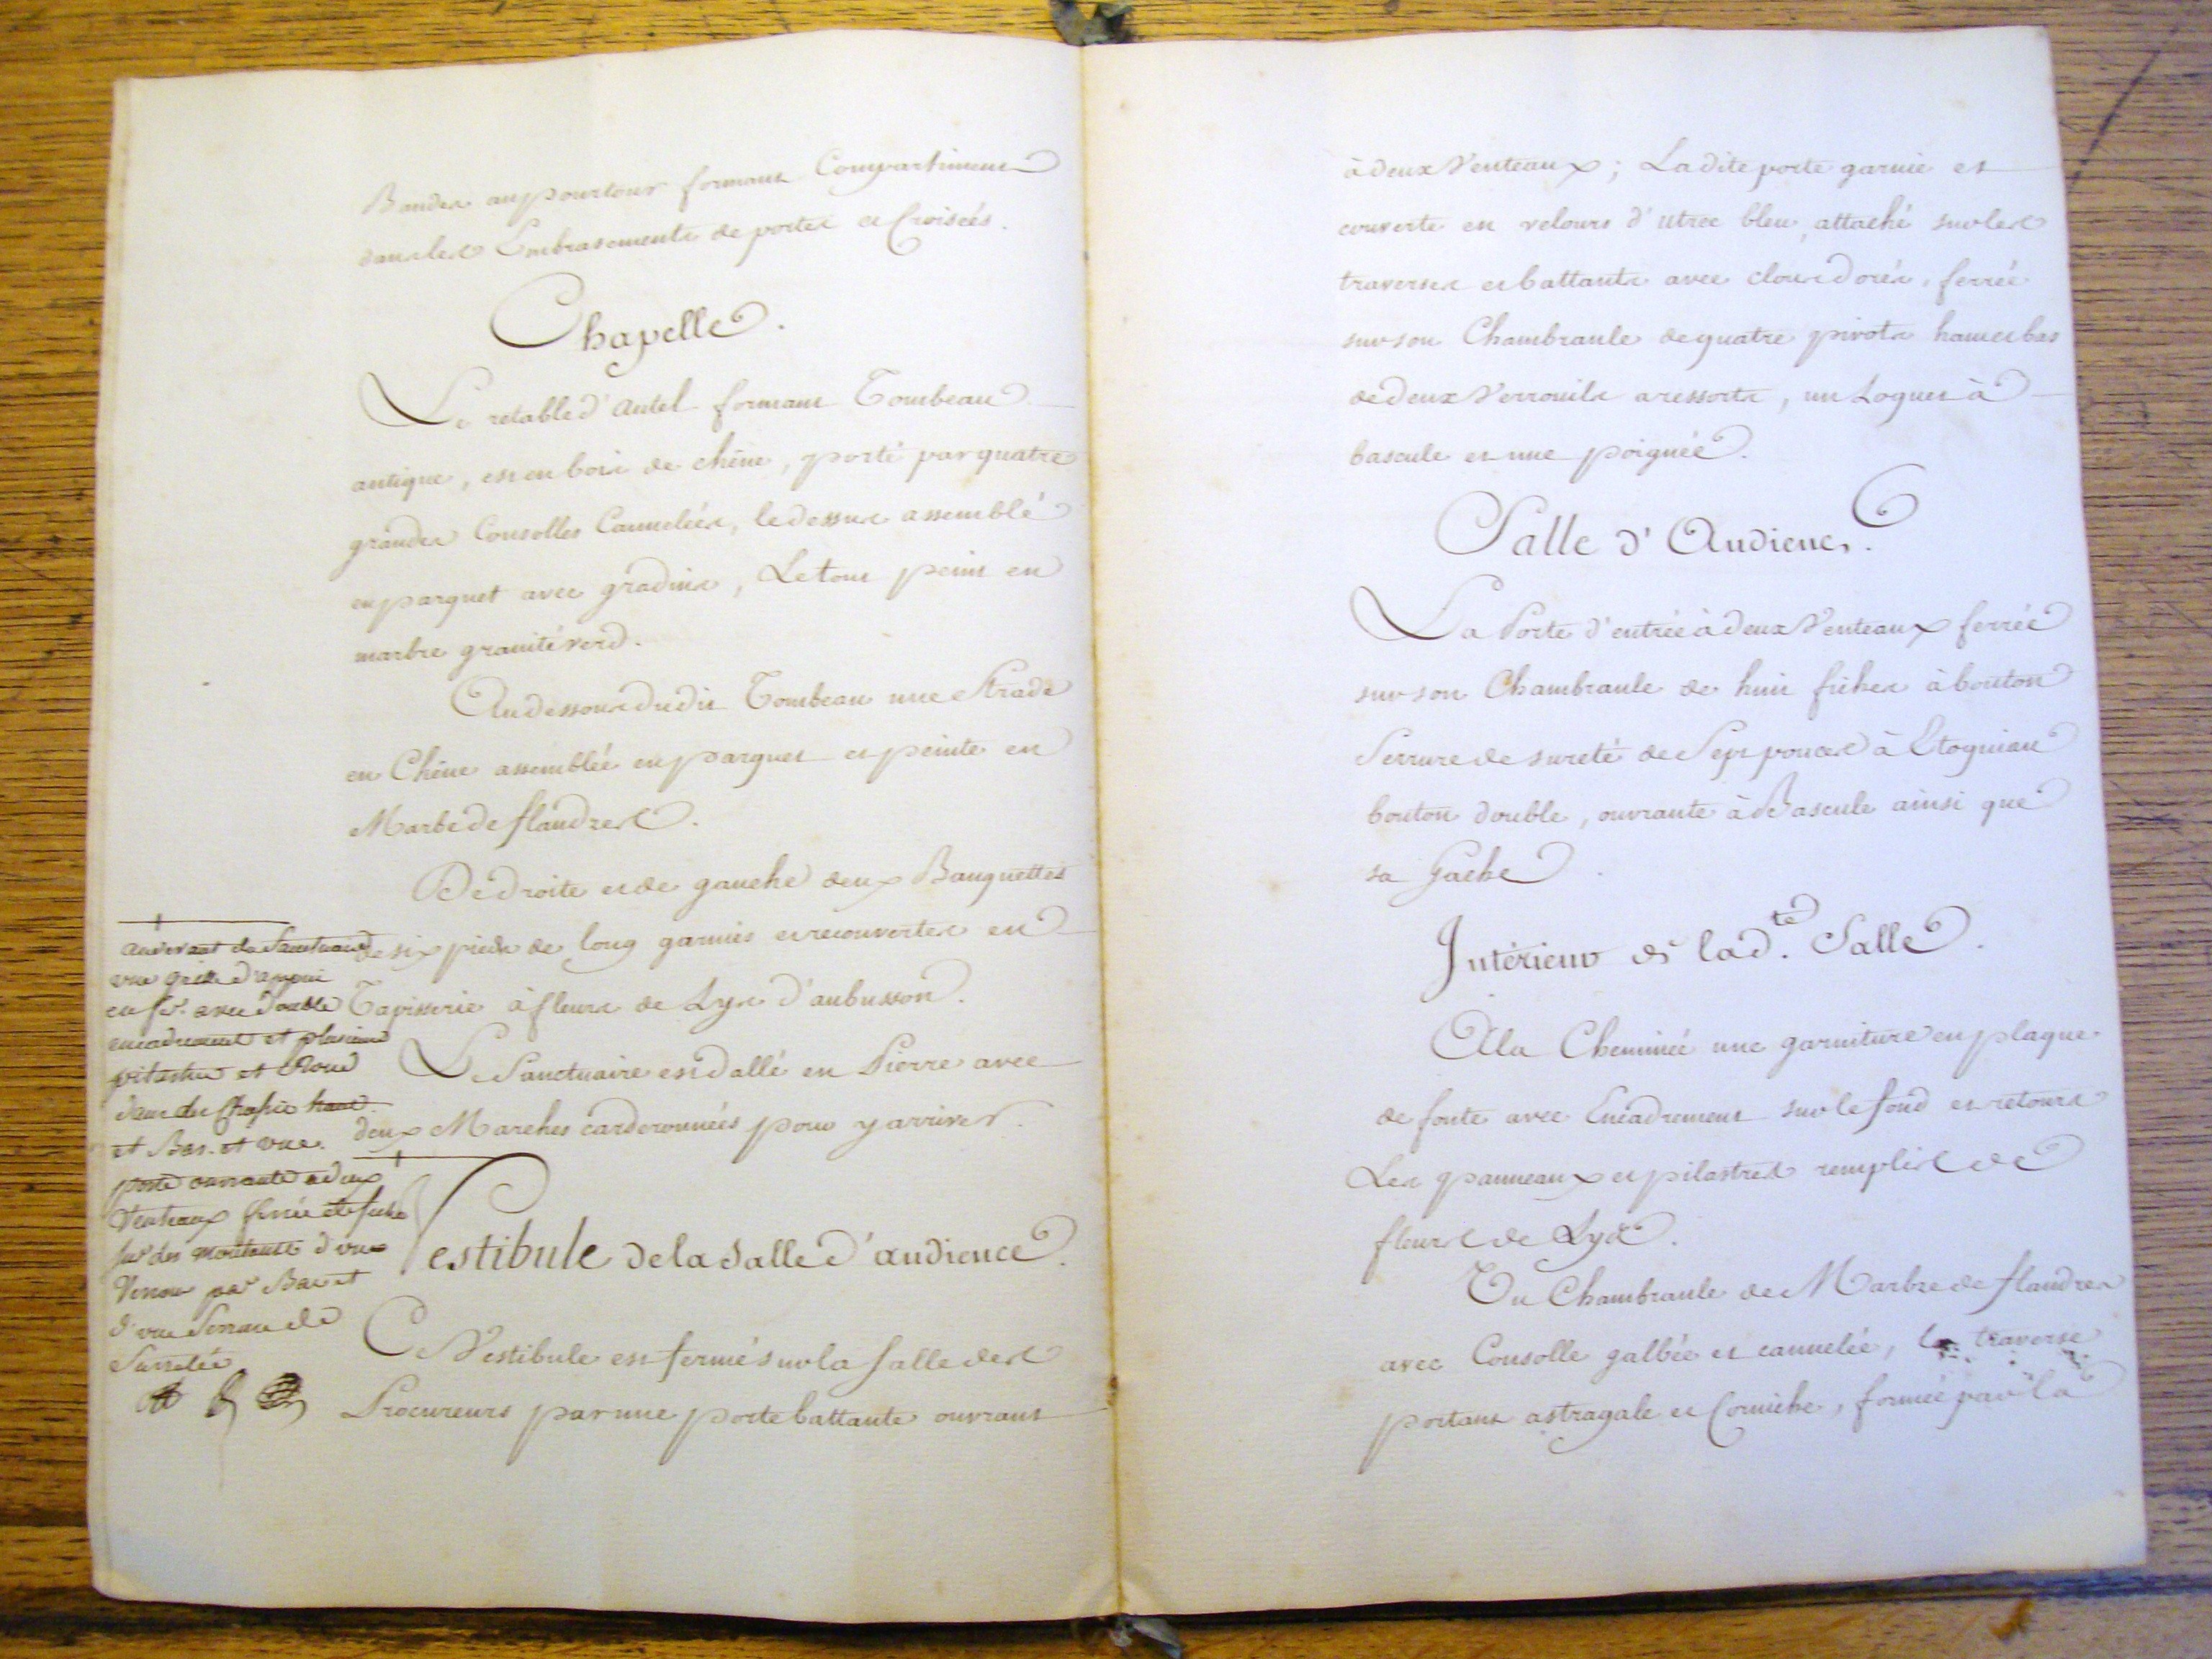 Bandes au pourtour formant Compartiment
dans les Embrasements de portes et Croisées.
Chapelle.
Le retable d'Autel formant Tombeau
antique, est en bois de chêne, porté par quatre
grandes Consolles Cannelées, le dessus assemblé
en parquet avec gradins, Le tout peint en
marbre granité verd.
Au dessous dudit Tombeau une Strade
en Chêne assemblée en parquet et peinte en
Marbe de flandres.
De droite et de gauche deux Banquettes
de six pieds de long garnies et recouvertes en
Tapisserie à fleurs de Lys d'aubusson.
Le Sanctuaire est dallé en Pierre avec
deux Marches carderonnées pour y arriver.
au devant du Sanctuaire
une grille d'appui
en fer avec double
encadrement et plusieurs
pilastres et Rond
dans des Chassis haut
et Bas. et une
porte ouvrante a deux
Venteaux ferrée de fiches
sur des montants d'une
Verrou par Bas et
d'une Serrure de
Suretée
Vestibule de la Salle d'audience.
Ce Vestibule est fermé sur la Salle des
Procureurs par une porte battante ouvrant
à deux Venteaux; La dite porte garnie et
couverte en velours d'utrec bleu, attaché sur les
traverses et battants avec clous dorés, ferrée
sur son Chambranle de quatre pivots haut et bas
de deux Verrouils a ressorts, un Loquet à
bascule et une poignée.
Salle d'Audience.
La Porte d'entrée à deux Venteaux ferrée
sur son Chambranle de huit fiches à bouton
Serrure de sureté de Sept pouces à Etoquiau
bouton double, ouvrante à Bascule ainsi que
sa Gache.
Intérieur de lad.te Salle.
A la Cheminée une garniture en plaque
de fonte avec Encadrement sur le fond et retours
Les panneaux et pilastres remplis de
fleurs de Lys.
Un Chambranle de Marbre de flandres
avec Consolle galbée et cannelée, la traverse
portant astragale et Corniche, formée par la